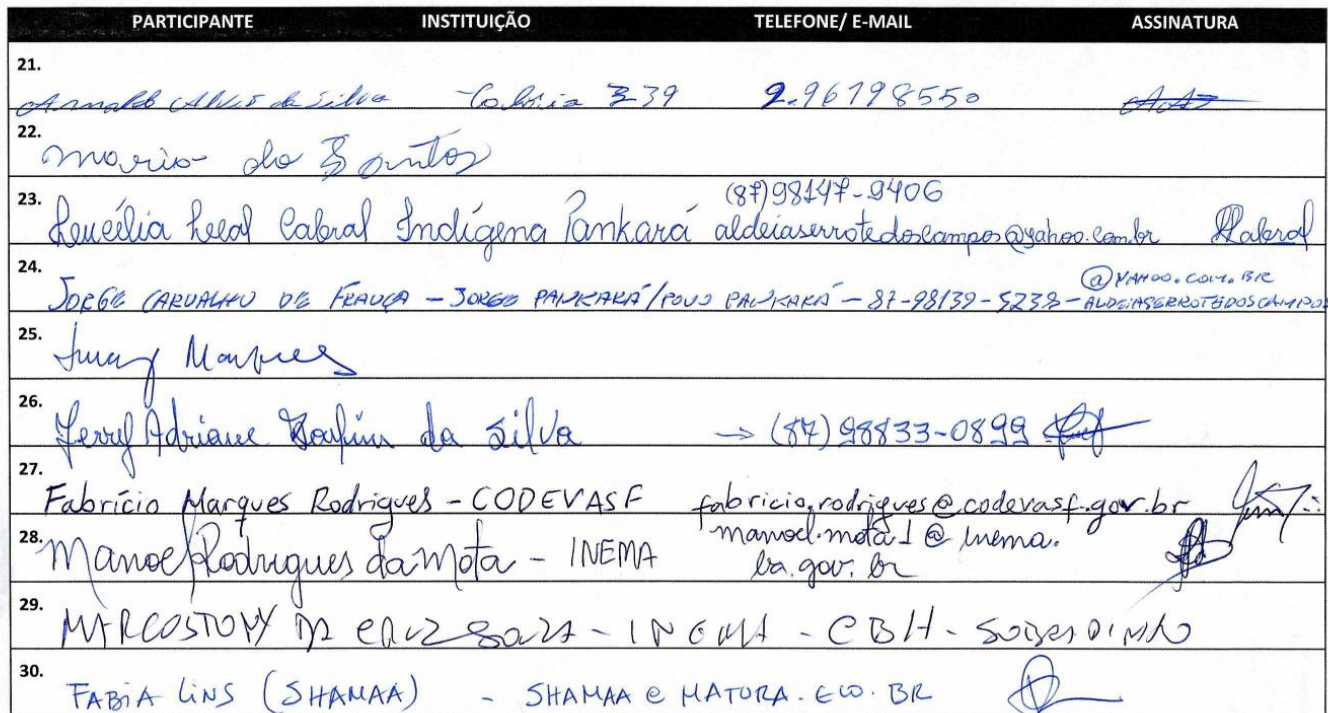 PARTICIPANTE INSTITUIÇÃO TELEFONE/ E-MAIL ASSINATURA
21.
Arnaldo Alves da Silva 339 9.96798550
22.
Mario do Santos
23. (87)98147-9406
Leucília Leal Cabral Indígena Pankará aldeiaserrotedoscampos@yahoo.com.br
24. @YAHOO.COM.BR
JORGE CARVALHO DE FRANÇA - JORGE PANKARÁ/POVO PANKARÁ - 87-98139-5238 - ALDEIASERROTEDOSCAMPOS
25.
26.
Jerry Adriane da Silva → (87) 98833-0899
27.
Fabrício Marques Rodrigues - CODEVASF fabricio.rodrigues@codevasf.gov.br
28. manoel.mota1@inema.
Manoel Rodrigues da Mota - INEMA ba.gov.br
29.
MARCOSTONY DA CRUZ SOUZA - INEMA - CBH - SOBRADINHO
30.
FABIA LINS (SHAMAA) - SHAMAA e MATURA.ECO.BR